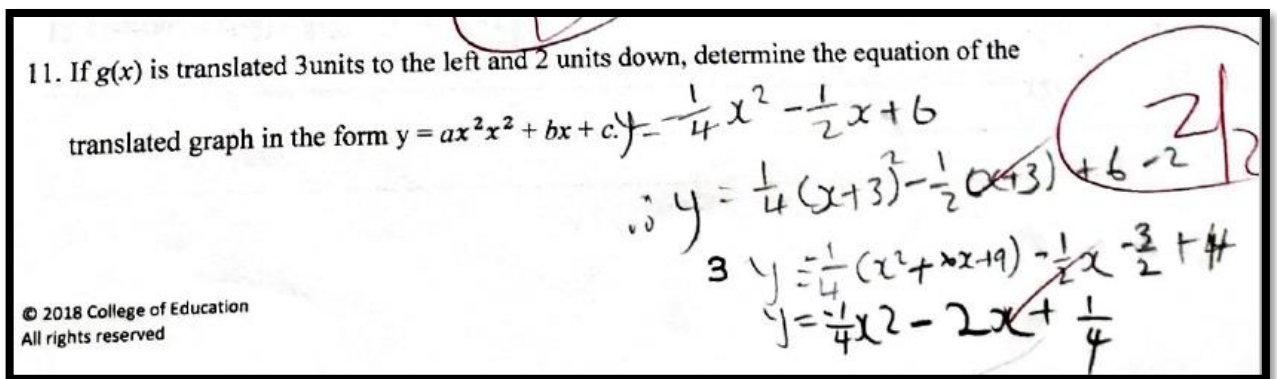 11. If g(x) is translated 3units to the left and 2 units down, determine the equation of the
translated graph in the form y = ax²x² + bx + c. y = -1/4 x² - 1/2 x + 6
2/2
∴ y = -1/4 (x+3)² - 1/2 (x+3) + 6 - 2
3 y = -1/4 (x² + 6x + 9) - 1/2 x - 3/2 + 4
y = -1/4 x2 - 2x + 1/4
© 2018 College of Education
All rights reserved